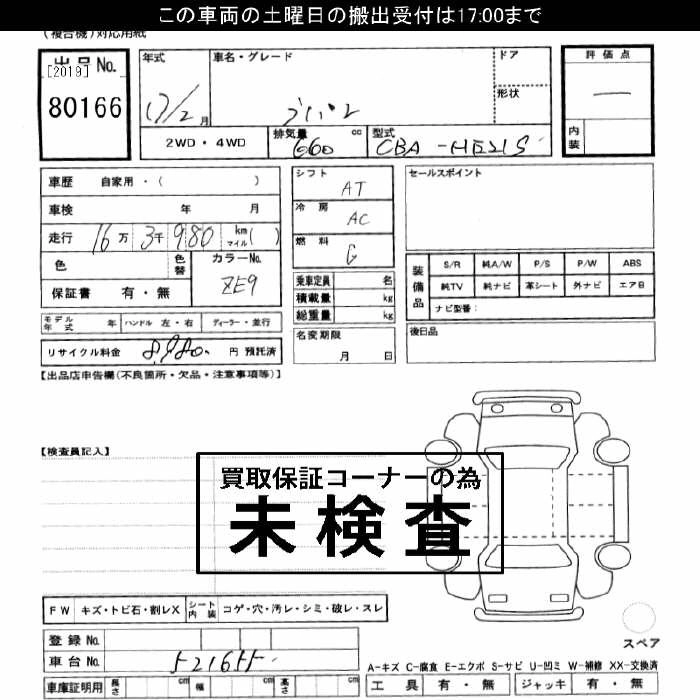 この車両の土曜日の搬出受付は17:00まで
(複合機)対応用紙
出品No.
[2019]
80166
年式
17/2月
車名・グレード
ドア
形状
評価点
内装
2WD・4WD
排気量 660 cc
型式 CBA-HE21S
車歴 自家用・( )
車検 年 月
走行 16万 3千 980 km マイル( )
色
色替
カラーNo.
ZE9
保証書 有・無
モデル年式 年 ハンドル 左・右 ディーラー・並行
リサイクル料金 8,980. 円 預託済
シフト AT
冷房 AC
燃料 G
乗車定員 名
積載量 kg
総重量 kg
名変期限
月 日
セールスポイント
装備品
S/R 純A/W P/S P/W ABS
純TV 純ナビ 革シート 外ナビ エアB
ナビ型番:
後日品
【出品店申告欄(不良箇所・欠品・注意事項等)】
【検査員記入】
買取保証コーナーの為
未検査
FW キズ・トビ石・割レX シート内装 コゲ・穴・汚レ・シミ・破レ・スレ
登録No.
車台No. 521655
車庫証明用 長さ cm 幅 cm 高さ cm
スペア
A-キズ C-腐食 E-エクボ S-サビ U-凹ミ W-補修 XX-交換済
工具 有・無 ジャッキ 有・無